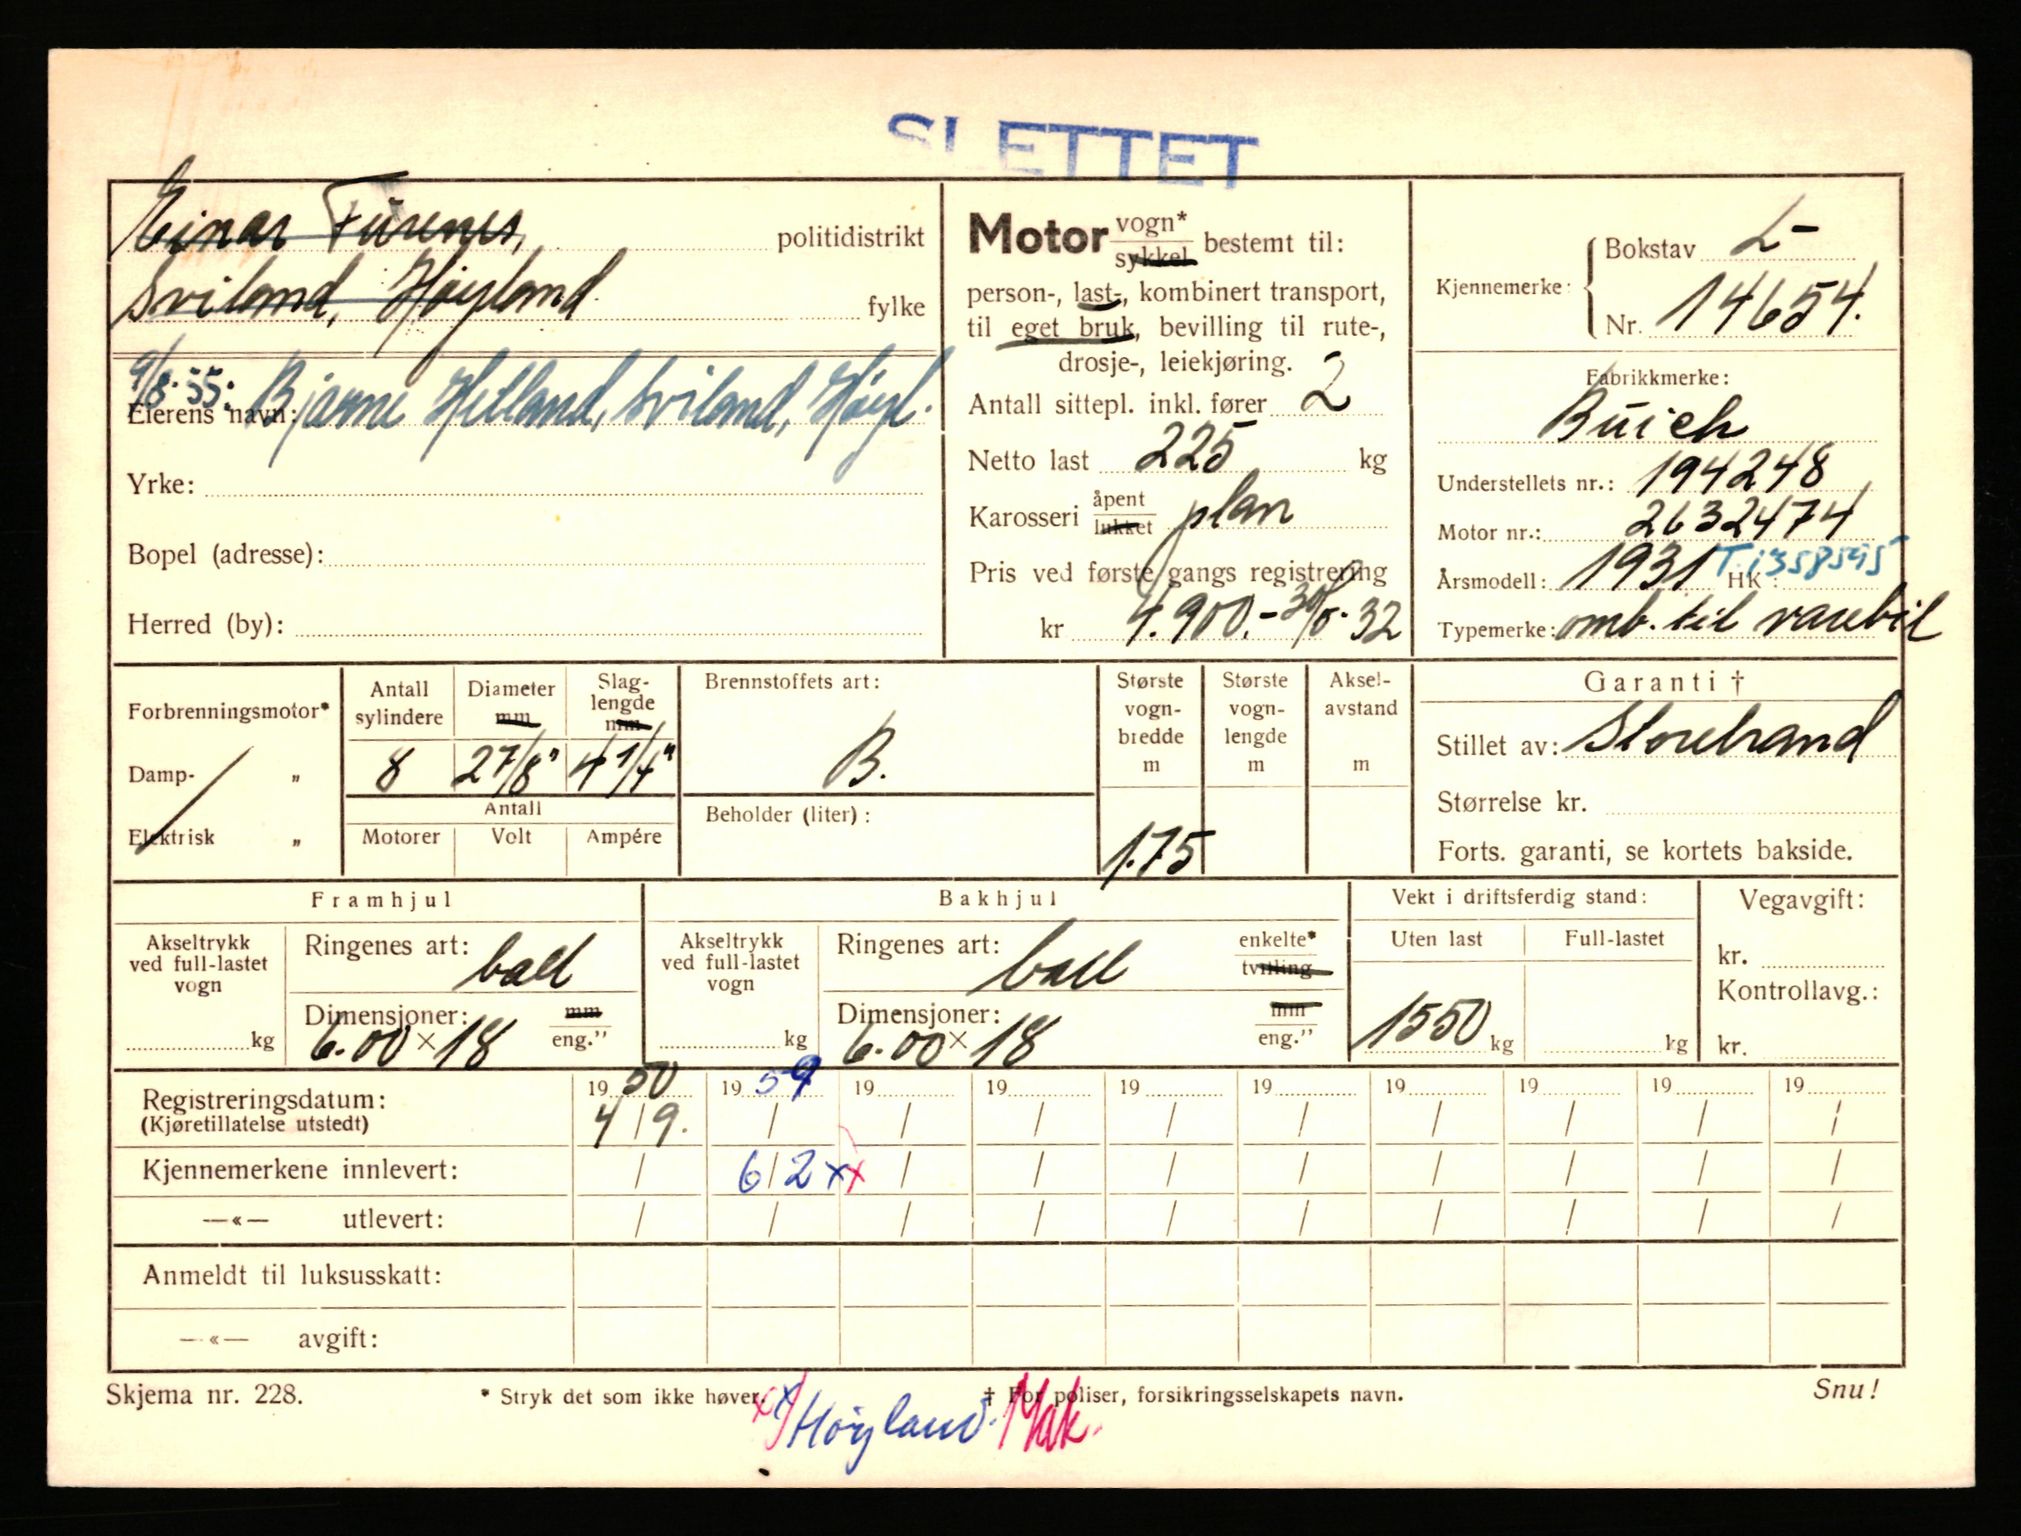 SLETTET
Einar Furenes, politidistrikt
Sviland, Høyland fylke
9/8-55: Bjarne Helland, Sviland, Høyl.
Eierens navn:
Yrke:
Bopel (adresse):
Herred (by):
Motor vogn* sykkel bestemt til:
person-, last-, kombinert transport,
til eget bruk, bevilling til rute-,
drosje-, leiekjøring.
Antall sittepl. inkl. fører 2
Netto last 225 kg
Karosseri åpent lukket plan
Pris ved første gangs registrering
kr 4.900.- 30/6-32
Kjennemerke: Bokstav L-
Nr. 14654.
Fabrikkmerke:
Buick
Understellets nr.: 194248
Motor nr.: 2632474
Årsmodell: 1931 HK: T.1358595
Typemerke: omb. til varebil
Forbrenningsmotor*
Damp- "
Elektrisk "
Antall sylindere
8
Diameter mm
2 7/8"
Slaglengde mm
4 1/4"
Antall
Motorer Volt Ampére
Brennstoffets art:
B.
Beholder (liter):
Største vogn-bredde m
1.75
Største vogn-lengde m
Aksel-avstand m
Garanti †
Stillet av: Storebrand
Størrelse kr.
Forts. garanti, se kortets bakside.
Framhjul
Akseltrykk ved full-lastet vogn
kg
Ringenes art: ball
Dimensjoner: mm
6.00 x 18 eng."
Bakhjul
Akseltrykk ved full-lastet vogn
kg
Ringenes art: ball enkelte* tvilling
Dimensjoner: mm
6.00 x 18 eng."
Vekt i driftsferdig stand:
Uten last Full-lastet
1550 kg kg
Vegavgift:
kr.
Kontrollavg.:
kr.
19 50 19 59 19 19 19 19 19 19 19 19
Registreringsdatum: 4/9. / / / / / / / / /
(Kjøretillatelse utstedt)
Kjennemerkene innlevert: / 6/2 x x / / / / / / / /
—«— utlevert: / / / / / / / / / /
Anmeldt til luksusskatt:
—«— avgift:
Skjema nr. 228. * Stryk det som ikke høver. † For poliser, forsikringsselskapets navn. Snu!
x x/ Høyland. Mak.